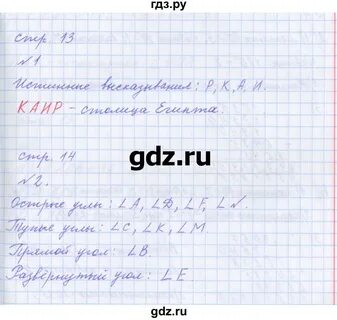 гдз.ру
стр. 13
№1
Истинные высказывания: Р, К, А, И.
КАИР - столица Египта.
gdz.ru
стр. 14
№2.
Острые углы: ∠A, ∠D, ∠F, ∠N.
Тупые углы: ∠C, ∠K, ∠M
Прямой угол: ∠B.
gdz.ru
Развёрнутый угол: ∠E.